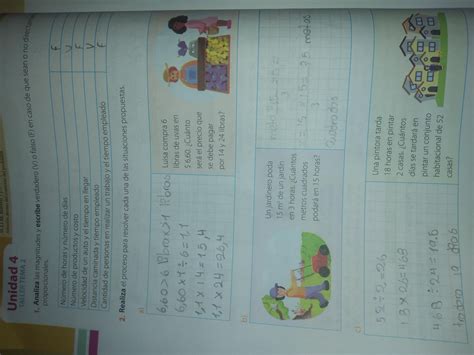 Unidad 4
TALLER TEMA 2
1. Analiza las magnitudes y escribe verdadero (V) o falso (F) en caso de que sean o no directamente
proporcionales.
Número de horas y número de días F
Número de productos y costo V
Velocidad de un auto y el tiempo en llegar F
Distancia caminada y tiempo empleado V
Cantidad de personas en realizar un trabajo y el tiempo empleado F
2. Realiza el proceso para resolver cada una de las situaciones propuestas.
a)
6,60 ÷ 6
6,60 x 1 ÷ 6 = 1,1
1,1 x 14 = 15,4
1,1 x 24 = 26,4
Luisa compra 6
libras de uvas en
$ 6,60. ¿Cuánto
será el precio que
se debe pagar
por 14 y 24 libras?
b)
Un jardinero poda
15 m² de un jardín
en 3 horas. ¿Cuántos
metros cuadrados
podará en 15 horas?
15 x 15 = 75 metros
3
cuadrados
c)
52 ÷ 2 = 26
18 x 26 = 468
468 ÷ 24 = 19,5
Una pintora tarda
18 horas en pintar
2 casas. ¿Cuántos
días se tardará en
pintar un conjunto
habitacional de 52
casas?